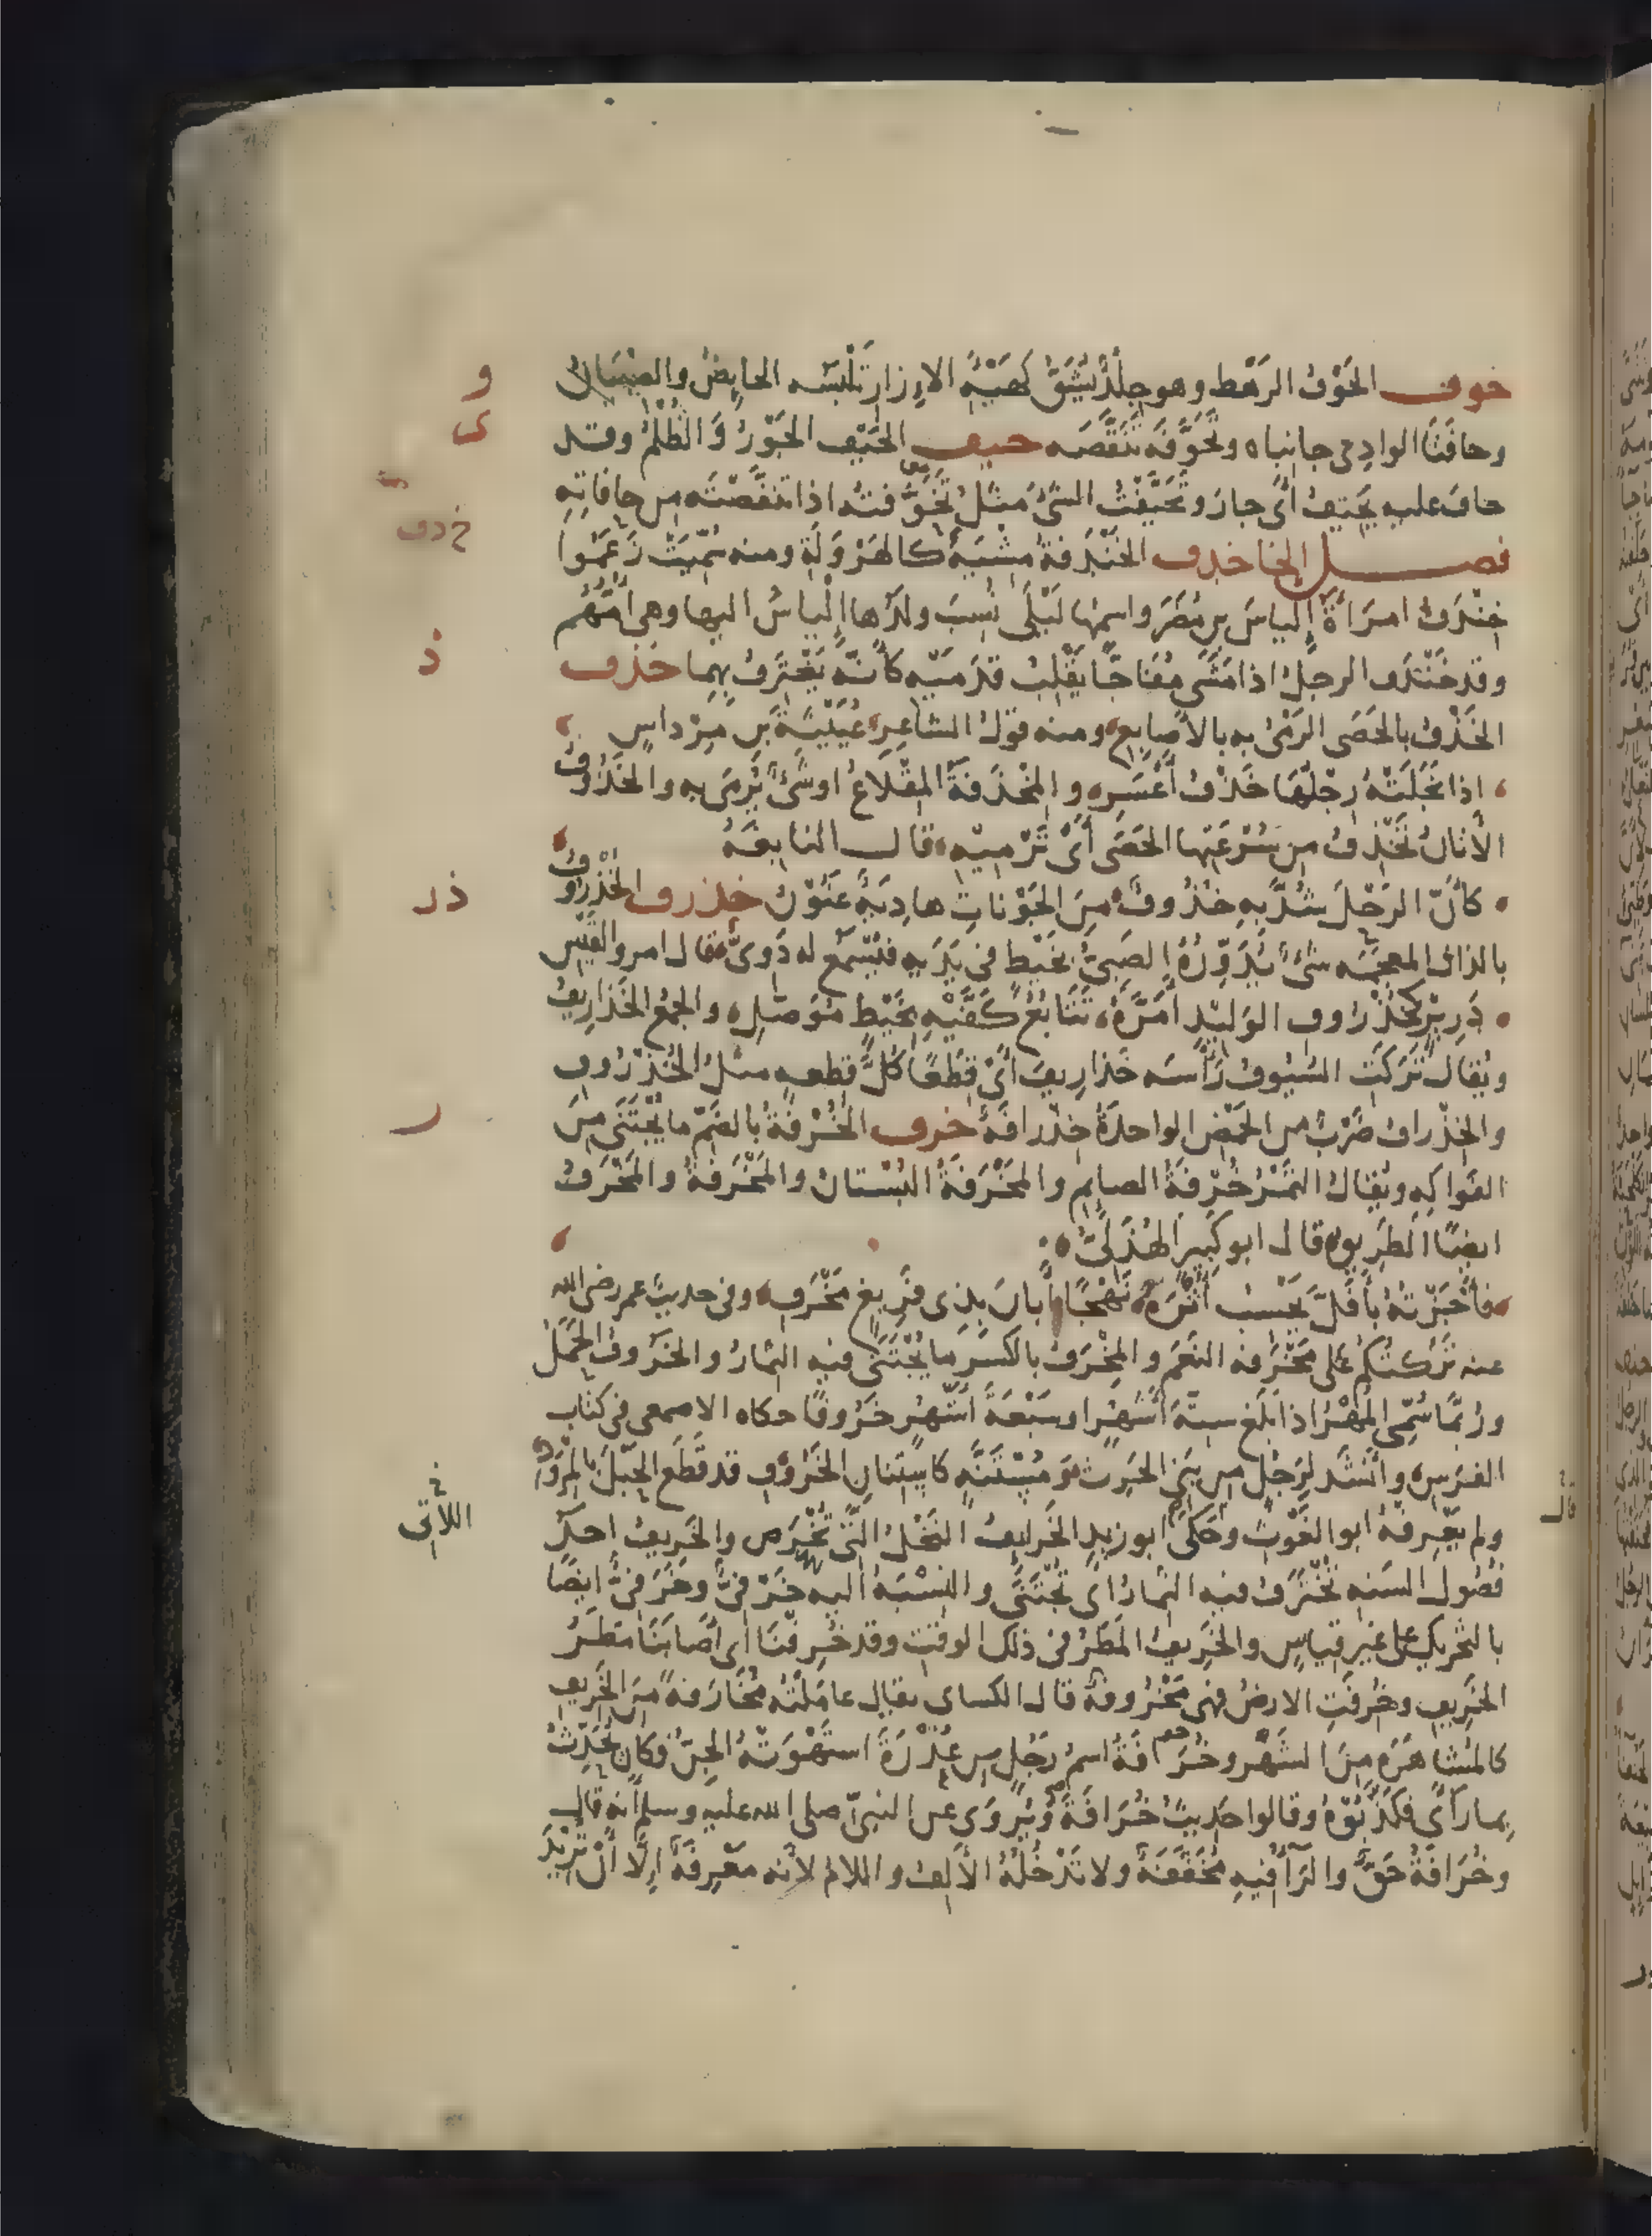 حوف الحَوْفُ الرَهْط وهو جِلْدٌ يُشَقُّ كهَيْئَةِ الاِزارِ تَلْبَسُه الحايِضُ والصِبْيَانُ
وحافَتَا الوادِى جانِباه وتَحَوَّفَه تَنَقَّصَه حيف الحَيْف الجَوْرُ وَالظُلْمُ وقد
حافَ عليه يَحيفُ أَىْ جارَ وتَحَيَّفْتُ الشئَ مثلُ تَحَوَّفتُه اذا تنقَّصْتَه مِن حافاتِهِ
فصل الخا خدف الخَنْدَفةُ مِشْيَةٌ كالهَرْوَلَةِ ومنه سُمِّيَتْ زَعَمُوا
خِنْدِفُ امرَأَةُ إِلياسَ بنِ مُضَرَ واسمُها لَيْلَى نُسِبَ ولدُها إِلْياسُ اليها وهى أُمُّهُم
وقد خَنْدَفَ الرجلُ اذا مَشَى مُفَاجًّا يَقْلِبُ قدَمَيْه كَأَنَّه يَغْتَرِفُ بِهِما خذف
الخَذْفُ بالحَصَى الرَمْىُ به بالأَصابِعِ ومنه قولُ الشاعِرِ عُيَيْنَةَ بن مِرْداسٍ
اذا نَجَلَتْهُ رِجْلُهَا خَذْفُ أَعْسَرِ والمِخْذَفةُ المِقْلاعُ اوشَئٌ يُرْمَى به والخَذُوفُ
الأَتانُ تَخْذِفُ من سُرْعَتِها الحَصَى أَىْ تَرْمِيْهِ قال النابِغَةُ
كأَنّ الرَحْلَ شُدَّ بِهِ خَذُوفٌ مِنَ الجَوْناتِ هادِيَةٌ عَنُوْنُ خذرف الخُذْرُوْفُ
بالذال المعجمه شئٌ يُدَوِّرُهُ الصَبِىُّ بخَيْطٍ فى يَدَيهِ فيُسْمَع له دَوِىٌّ قال امروالقَيْس
دَرِيْرٍ كَخُذْرُوفِ الوَليْدِ أَمَرَّهُ تَتَابُعُ كَفَّيْهِ بخَيْطٍ مُوَصَّلِ والجمْعُ الخَذارِيفُ
ويُقالُ تَرَكَتِ السُيُوفُ رَأْسَه خَذارِيفَ أَىْ قِطَعًا كلُّ قطعه مثلُ الخُذْرُوفِ
والخِذْرافُ ضَرْبٌ من الحَمْضِ الواحدَةُ خِذْرافَةٌ خرف الخُرْفةُ بالضَمّ ما يُجْتَنَى مِنَ
الفواكِه ويُقالُ التَمْرُ خُرْفَةُ الصايِمِ والمَخْرَفةُ البُسْتانُ والمَخْرَفةُ والمَخْرَفُ
ايضًا الطَرِيقُ قال ابو كَبِيرٍ الهُذَلىُّ
فأَجَزْتهُ بأَفَلَّ يَحْسَبُ أَثْرَهُ نَهْجًا أَبانَ بِذِى فَرِيغٍ مَخْرَفِ وفى حديث عمر رضى الله
عنه تَرَكتُكُم على مَخْرَفه النَعَمِ والمِخْرَفُ بالكسْرِ ما يُجْتَنَى فيه الثِمارُ والخَرُوفُ الحَمَلُ
ورُبَّمَا سُمِّى المُهْرُ اذا بَلَغ سِتّةَ أَشْهُرٍ او سَبْعَةَ أَشْهُرٍ خَرُوفًا حكاه الاصمعى فى كتاب
الفرَسِ وأَنْشَد لِرَجُلٍ مِن بَنِى الحَرِث ومُسْتَنَّةٍ كاسْتِنانِ الخَرُوفِ قد قَطَعَ الحَبْلَ بالمِرْوَدِ
ولم يعْرِفهُ ابو الغَوْثِ وحَكَى ابو زيدٍ الخَرايفُ النَخْلُ الَّتى تُخْرَص والخَريفُ احدُ
فُصُول السَنه تُخْتَرَفُ فيه الثمارُ اى تُجْتَنَى والنِسْبَةُ اليه خَرْفىٌّ وخَرَفىٌّ ايضًا
بالتحْرِيك على غير قياسٍ والخَرِيفُ المَطَرُ فى ذلك الوقتِ وقد خُرِفْنَا اى أَصابَنَا مَطَرُ
الخَرِيفِ وخُرِفَتِ الارضُ فهى مَخْرُوفةٌ قال الكساى يقال عامَلْتُه مُخَارَفةً مِنَ الخَرِيفِ
كالمُشاهَرَهِ مِنَ الشَهْرِ وخُرَافَةُ اسمُ رَجُلٍ مِن عُذْرَةَ استَهْوَتْهُ الجِنُّ فكان يُحَدِّثُ
بِما رأَى فكَذَّبُوْهُ وقالوا حَدِيثُ خُرَافَةَ ويُرْوَى عن النبىّ صلى الله عليه وسلم أنه قال
وخُرَافَةُ حَقٌّ والرَآ فيهِ مُخَفَّفَةٌ ولا تَدْخُلُهُ الأَلِفُ واللام لأَنه مَعْرِفَةٌ إِلَّا أَنْ تُرِيْدَ
و
ى
خ دف
ذ
ذر
ر
اللاتى